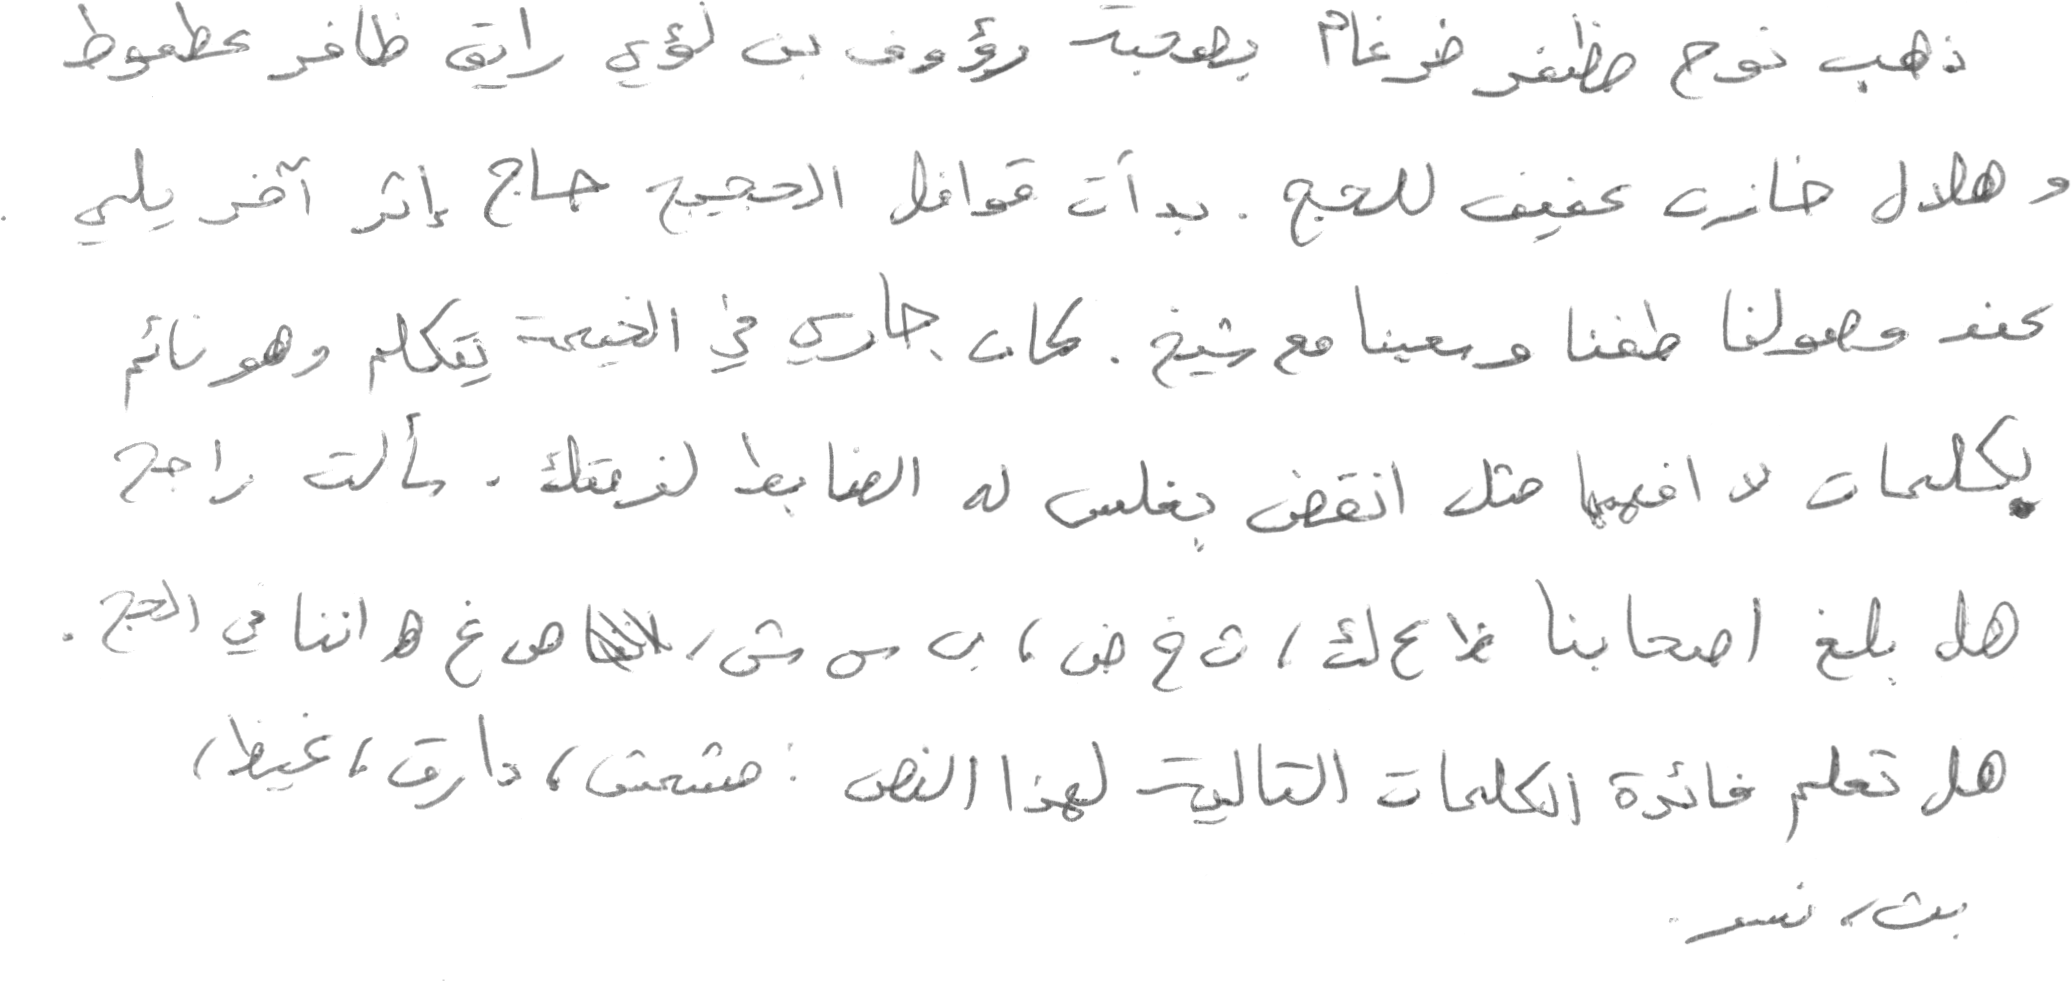 ذهب نوح مظفر ضرغام بصحبة رؤوف بن لؤي رايق ظافر عطعوط
و هلال خازن عفيف للحج . بدأت قوافل الحجيج حاج بإثر آخر يلبي .
عند وصولنا طفنا وسعينا مع شيخ . كان جاري في الخيمة يتكلم وهو نائم
بكلمات لا افهمها مثل انقض بغلس له الضابط لفرمتك . سألت راجح
هل بلغ اصحابنا ظ ع ك ، ث خ ض ، ب س ش ، ص غ ه اننا في الحج .
هل تعلم فائدة الكلمات التالية لهذا النص : مشمش ، دارق ، غيظ ،
بث ، نسر .